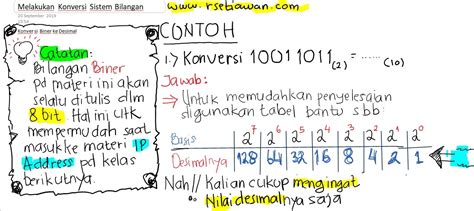 Melakukan Konversi Sistem Bilangan
www.rsebiawan.com
20 September 2018
Konversi Biner ke Desimal
Catatan:
Bilangan Biner
pd materi ini akan
selalu ditulis dlm
8 bit. Hal ini utk
mempermudah saat
masuk ke materi IP
Address pd kelas
berikutnya.
CONTOH
1.) Konversi 1001 1011 (2) = ...... (10)
Jawab:
⇒ Untuk memudahkan penyelesaian
digunakan tabel bantu sbb:
Basis 2^7 2^6 2^5 2^4 2^3 2^2 2^1 2^0
Desimalnya 128 64 32 16 8 4 2 1
Nah// Kalian cukup mengingat
Nilai desimalnya saja